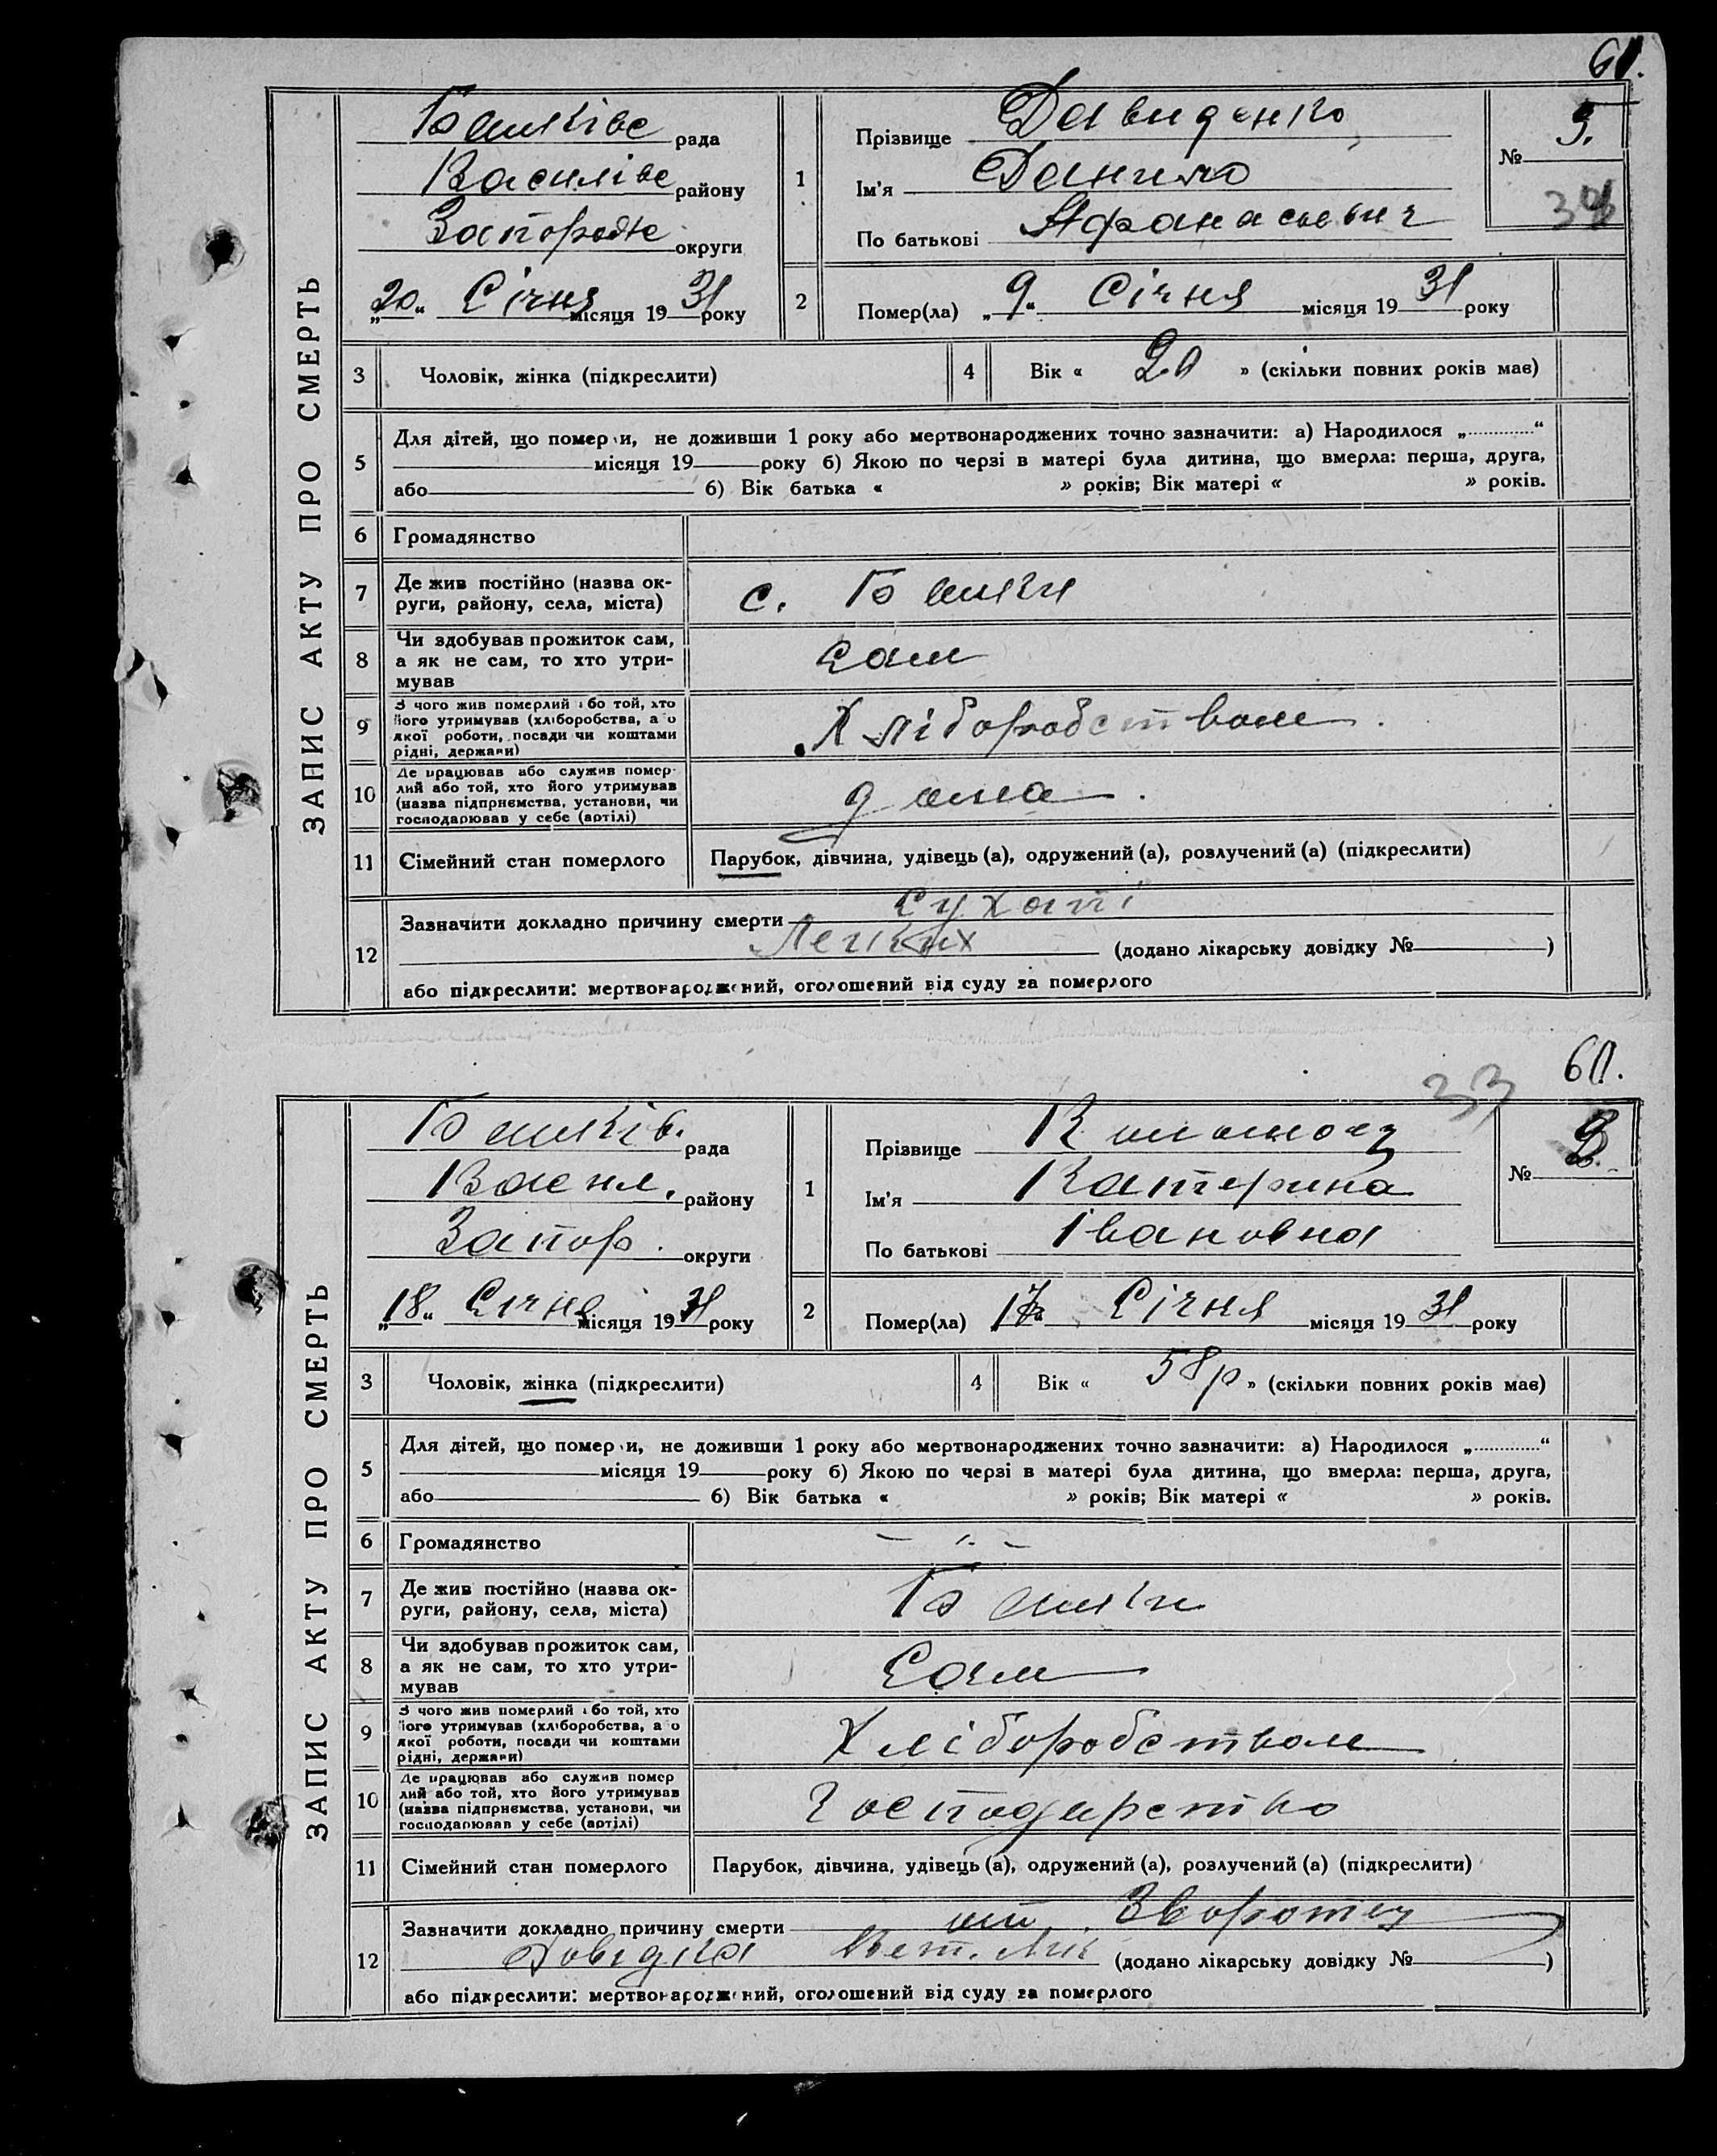 61.
ЗАПИС АКТУ ПРО СМЕРТЬ
рада
Василівс району
округи
„20“ Січня місяця 19 31 року
1
Прізвище Давиденко
Ім'я Данило
По батькові Афанасьевич
№ 3.
2
Помер(ла) „9“ Січня місяця 19 31 року
3 Чоловік, жінка (підкреслити)
4 Вік « 20 » (скільки повних років має)
5
Для дітей, що померли, не доживши 1 року або мертвонароджених точно зазначити: а) Народилося „ “
місяця 19 року б) Якою по черзі в матері була дитина, що вмерла: перша, друга,
або б) Вік батька « » років; Вік матері « » років.
6 Громадянство
7 Де жив постійно (назва ок-
руги, району, села, міста)
с.
8 Чи здобував прожиток сам,
а як не сам, то хто утри-
мував
Сам
9 З чого жив померлий або той, хто
його утримував (хліборобства, а о
якої роботи, посади чи коштами
рідні, держави)
Хліборобством.
10 Де працював або служив помер-
лий або той, хто його утримував
(назва підприємства, установи, чи
господарював у себе (артілі)
дома.
11 Сімейний стан померлого
Парубок, дівчина, удівець (а), одружений (а), розлучений (а) (підкреслити)
12
Зазначити докладно причину смерти Сухоті
Легких (додано лікарську довідку № )
або підкреслити: мертвонароджений, оголошений від суду за померлого
33
60.
ЗАПИС АКТУ ПРО СМЕРТЬ
рада
Васил. району
Запор. округи
„18“ Січня місяця 19 31 року
1
Прізвище
Ім'я Катерина
По батькові Івановна
№
2
Помер(ла) „17“ Січня місяця 19 31 року
3 Чоловік, жінка (підкреслити)
4 Вік « 58р » (скільки повних років має)
5
Для дітей, що померли, не доживши 1 року або мертвонароджених точно зазначити: а) Народилося „ “
місяця 19 року б) Якою по черзі в матері була дитина, що вмерла: перша, друга,
або б) Вік батька « » років; Вік матері « » років.
6 Громадянство
7 Де жив постійно (назва ок-
руги, району, села, міста)
8 Чи здобував прожиток сам,
а як не сам, то хто утри-
мував
Сам
9 З чого жив померлий або той, хто
його утримував (хліборобства, а о
якої роботи, посади чи коштами
рідні, держави)
Хліборобством
10 Де працював або служив помер
лий або той, хто його утримував
(назва підприємства, установи, чи
господарював у себе (артілі)
Господарство
11 Сімейний стан померлого
Парубок, дівчина, удівець (а), одружений (а), розлучений (а) (підкреслити)
12
Зазначити докладно причину смерти
Довідка (додано лікарську довідку № )
або підкреслити: мертвонароджений, оголошений від суду за померлого